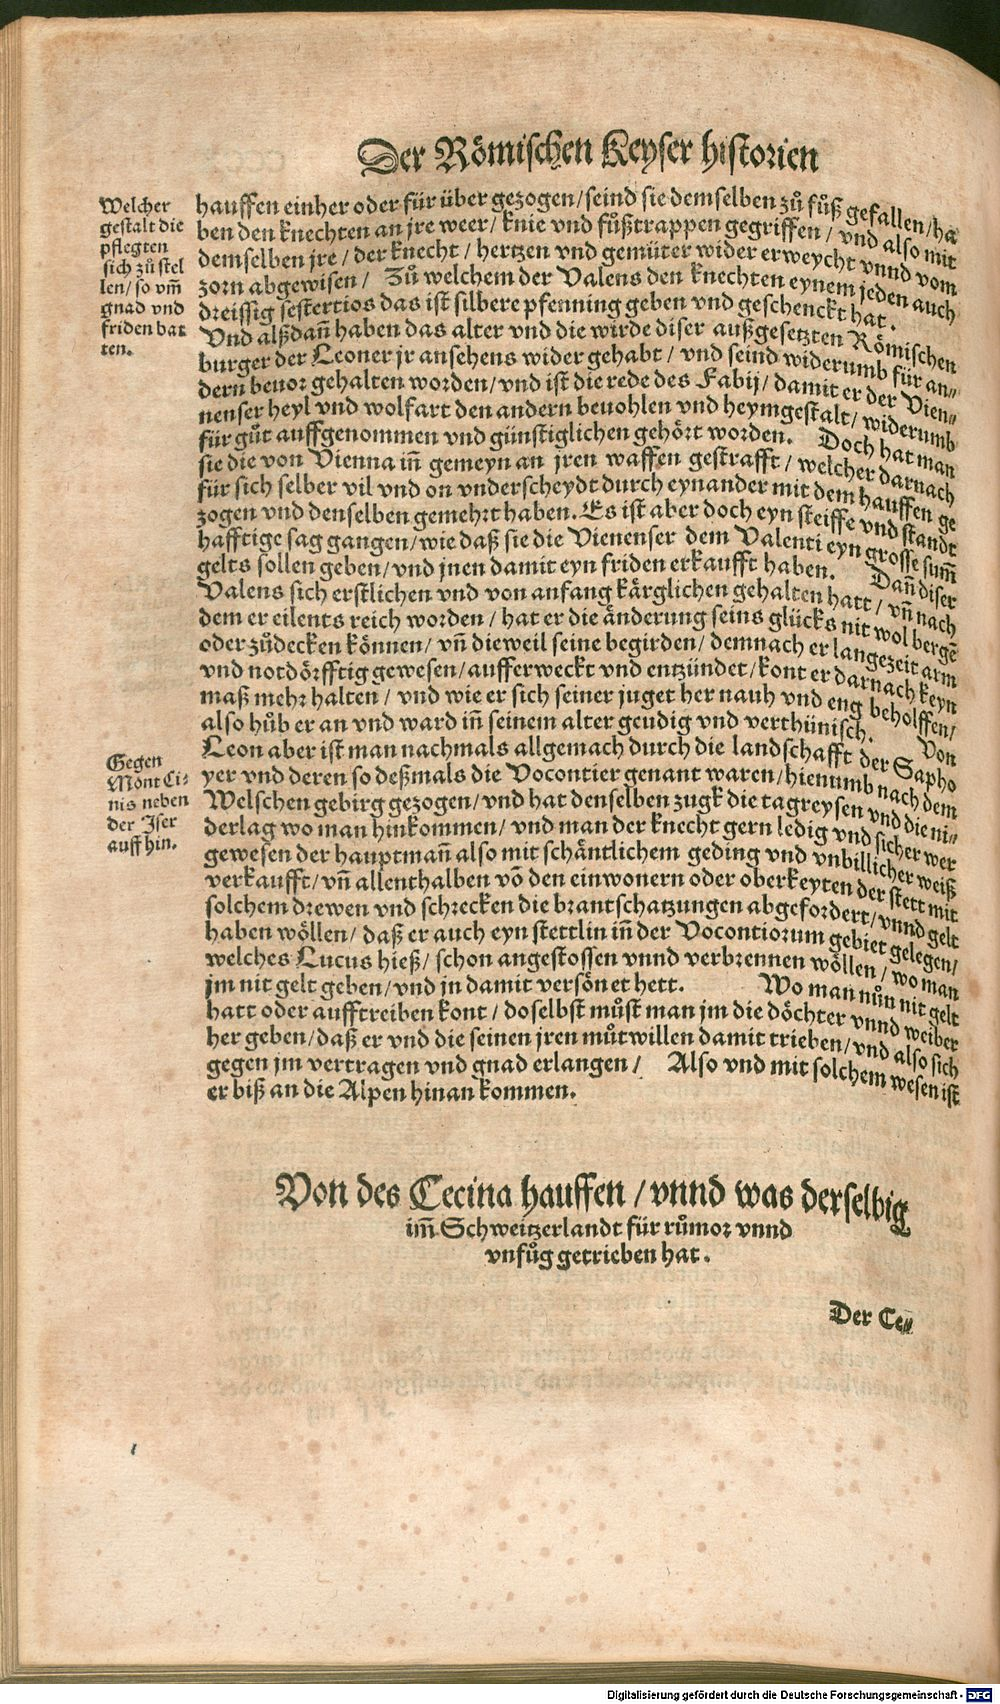 Der Römischen Keyser historien
Welcher
gestalt die
pflegten
sich zů stel
len/ so vm̃
gnad vnd
friden bat
ten.
hauffen einher oder für über gezogen/seind sie demselben zů fůß gefallen/ha
ben den knechten an jre weer/ knie vnd fůßtrappen gegriffen/ vnd also mit
demselben jre/ der knecht/ hertzen vnd gemüter wider erweycht vnnd vom
zorn abgewisen/ Zů welchem der Valens den knechten eynem jeden auch
dreissig sestertios das ist silbere pfenning geben vnd geschenckt hat.
Vnd alßdañ haben das alter vnd die wirde diser außgesetzten Römischen
burger der Leoner jr ansehens wider gehabt/ vnd seind widerumb für an⸗
dern beuor gehalten worden/vnd ist die rede des Fabij/ damit er der Vien⸗
nenser heyl vnd wolfart den andern beuohlen vnd heymgestalt/ widerumb
für gůt auffgenommen vnd günstiglichen gehört worden. Doch hat man
sie die von Vienna iñ gemeyn an jren waffen gestrafft/ welcher darnach
für sich selber vil vnd on vnderscheydt durch eynander mit dem hauffen ge
zogen vnd denselben gemehrt haben. Es ist aber doch eyn steiffe vnd standt
hafftige sag gangen/wie daß sie die Vienenser dem Valenti eyn grosse sum̃
gelts sollen geben/vnd jnen damit eyn friden erkaufft haben. Dañ diser
Valens sich erstlichen vnd von anfang kärglichen gehalten hatt/ vñ nach
dem er eilents reich worden/ hat er die änderung seins glücks nit wol bergē
oder zůdecken können/ vñ dieweil seine begirden/ demnach er langezeit arm
vnd notdörfftig gewesen/aufferweckt vnd entzündet/kont er darnach keyn
maß mehr halten/ vnd wie er sich seiner juget her nauh vnd eng beholffen/
also hůb er an vnd ward iñ seinem alter geudig vnd verthünisch. Von
Leon aber ist man nachmals allgemach durch die landschafft der Sapho
yer vnd deren so deßmals die Vocontier genant waren/hienumb nach dem
Welschen gebirg gezogen/vnd hat denselben zugk die tagreysen vnd die ni⸗
derlag wo man hinkommen/ vnd man der knecht gern ledig vnd sicher wer
gewesen der hauptmañ also mit schäntlichem geding vnd vnbillicher weiß
verkaufft/vñ allenthalben võ den einwonern oder oberkeyten der stett mit
solchem drewen vnd schrecken die brantschatzungen abgefordert/vnnd gelt
haben wöllen/ daß er auch eyn stettlin iñ der Vocontiorum gebiet gelegen/
welches Lucus hieß/ schon angestossen vnnd verbrennen wöllen/ wo man
jm nit gelt geben/vnd jn damit versönet hett. Wo man nůn nit gelt
hatt oder aufftreiben kont/ doselbst můst man jm die döchter vnnd weiber
her geben/daß er vnd die seinen jren můtwillen damit trieben/vnd also sich
gegen jm vertragen vnd gnad erlangen/ Also vnd mit solchem wesen ist
er biß an die Alpen hinan kommen.
Gegen
Mont Ci⸗
nis neben
der Iser
auff hin.
Von des Cecina hauffen/vnnd was derselbig
im̃ Schweitzerlandt für růmor vnnd
vnfůg getrieben hat.
Der Ce⸗
Digitalisierung gefördert durch die Deutsche Forschungsgemeinschaft - DFG